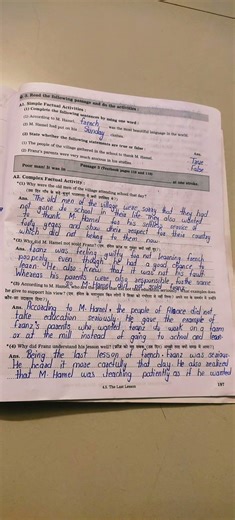 Q.3. Read the following passage and do the activities :
A1. Simple Factual Activities :
(1) Complete the following sentences by using one word :
(1) According to M. Hamel, French was the most beautiful language in the world.
(2) M. Hamel had put on his Sunday clothes.
(2) State whether the following sentences are true or false :
Ans.
(1) The people of the village gathered in the school to thank M. Hamel. True
(2) Franz's parents were very much anxious in his studies. False
A2. Complex Factual Activity
*(1) Why were the old men of the village attending school that day?
Ans. The old men of the village were sorry that they had
not gone to school in their life. They also wanted
to thank M. Hamel for his untiring service of
forty years and show their respect for their country
which did not belong to them now.
*(2) Why did M. Hamel not scold Franz?
Ans. Franz was feeling guilty for not learning french
properly, even though he had a good chance to
learn. He also knew that it was not his fault
whereas his parents were also responsible for the same
M. Hamel did not scold Franz.
*(3) According to M. Hamel,
Ans. According to M. Hamel, the people of France did not
take education seriously. He gave the example of
Franz's parents who wanted franz to work on a farm
or at the mill instead of going to school and learn.
*(4) Why did Franz understand his lesson well?
Ans. Being the last lesson of french, franz was serious.
He heard it more carefully that day. He also realized
that M. Hamel was teaching patiently as if he wanted
4.3 The Last Lesson
197